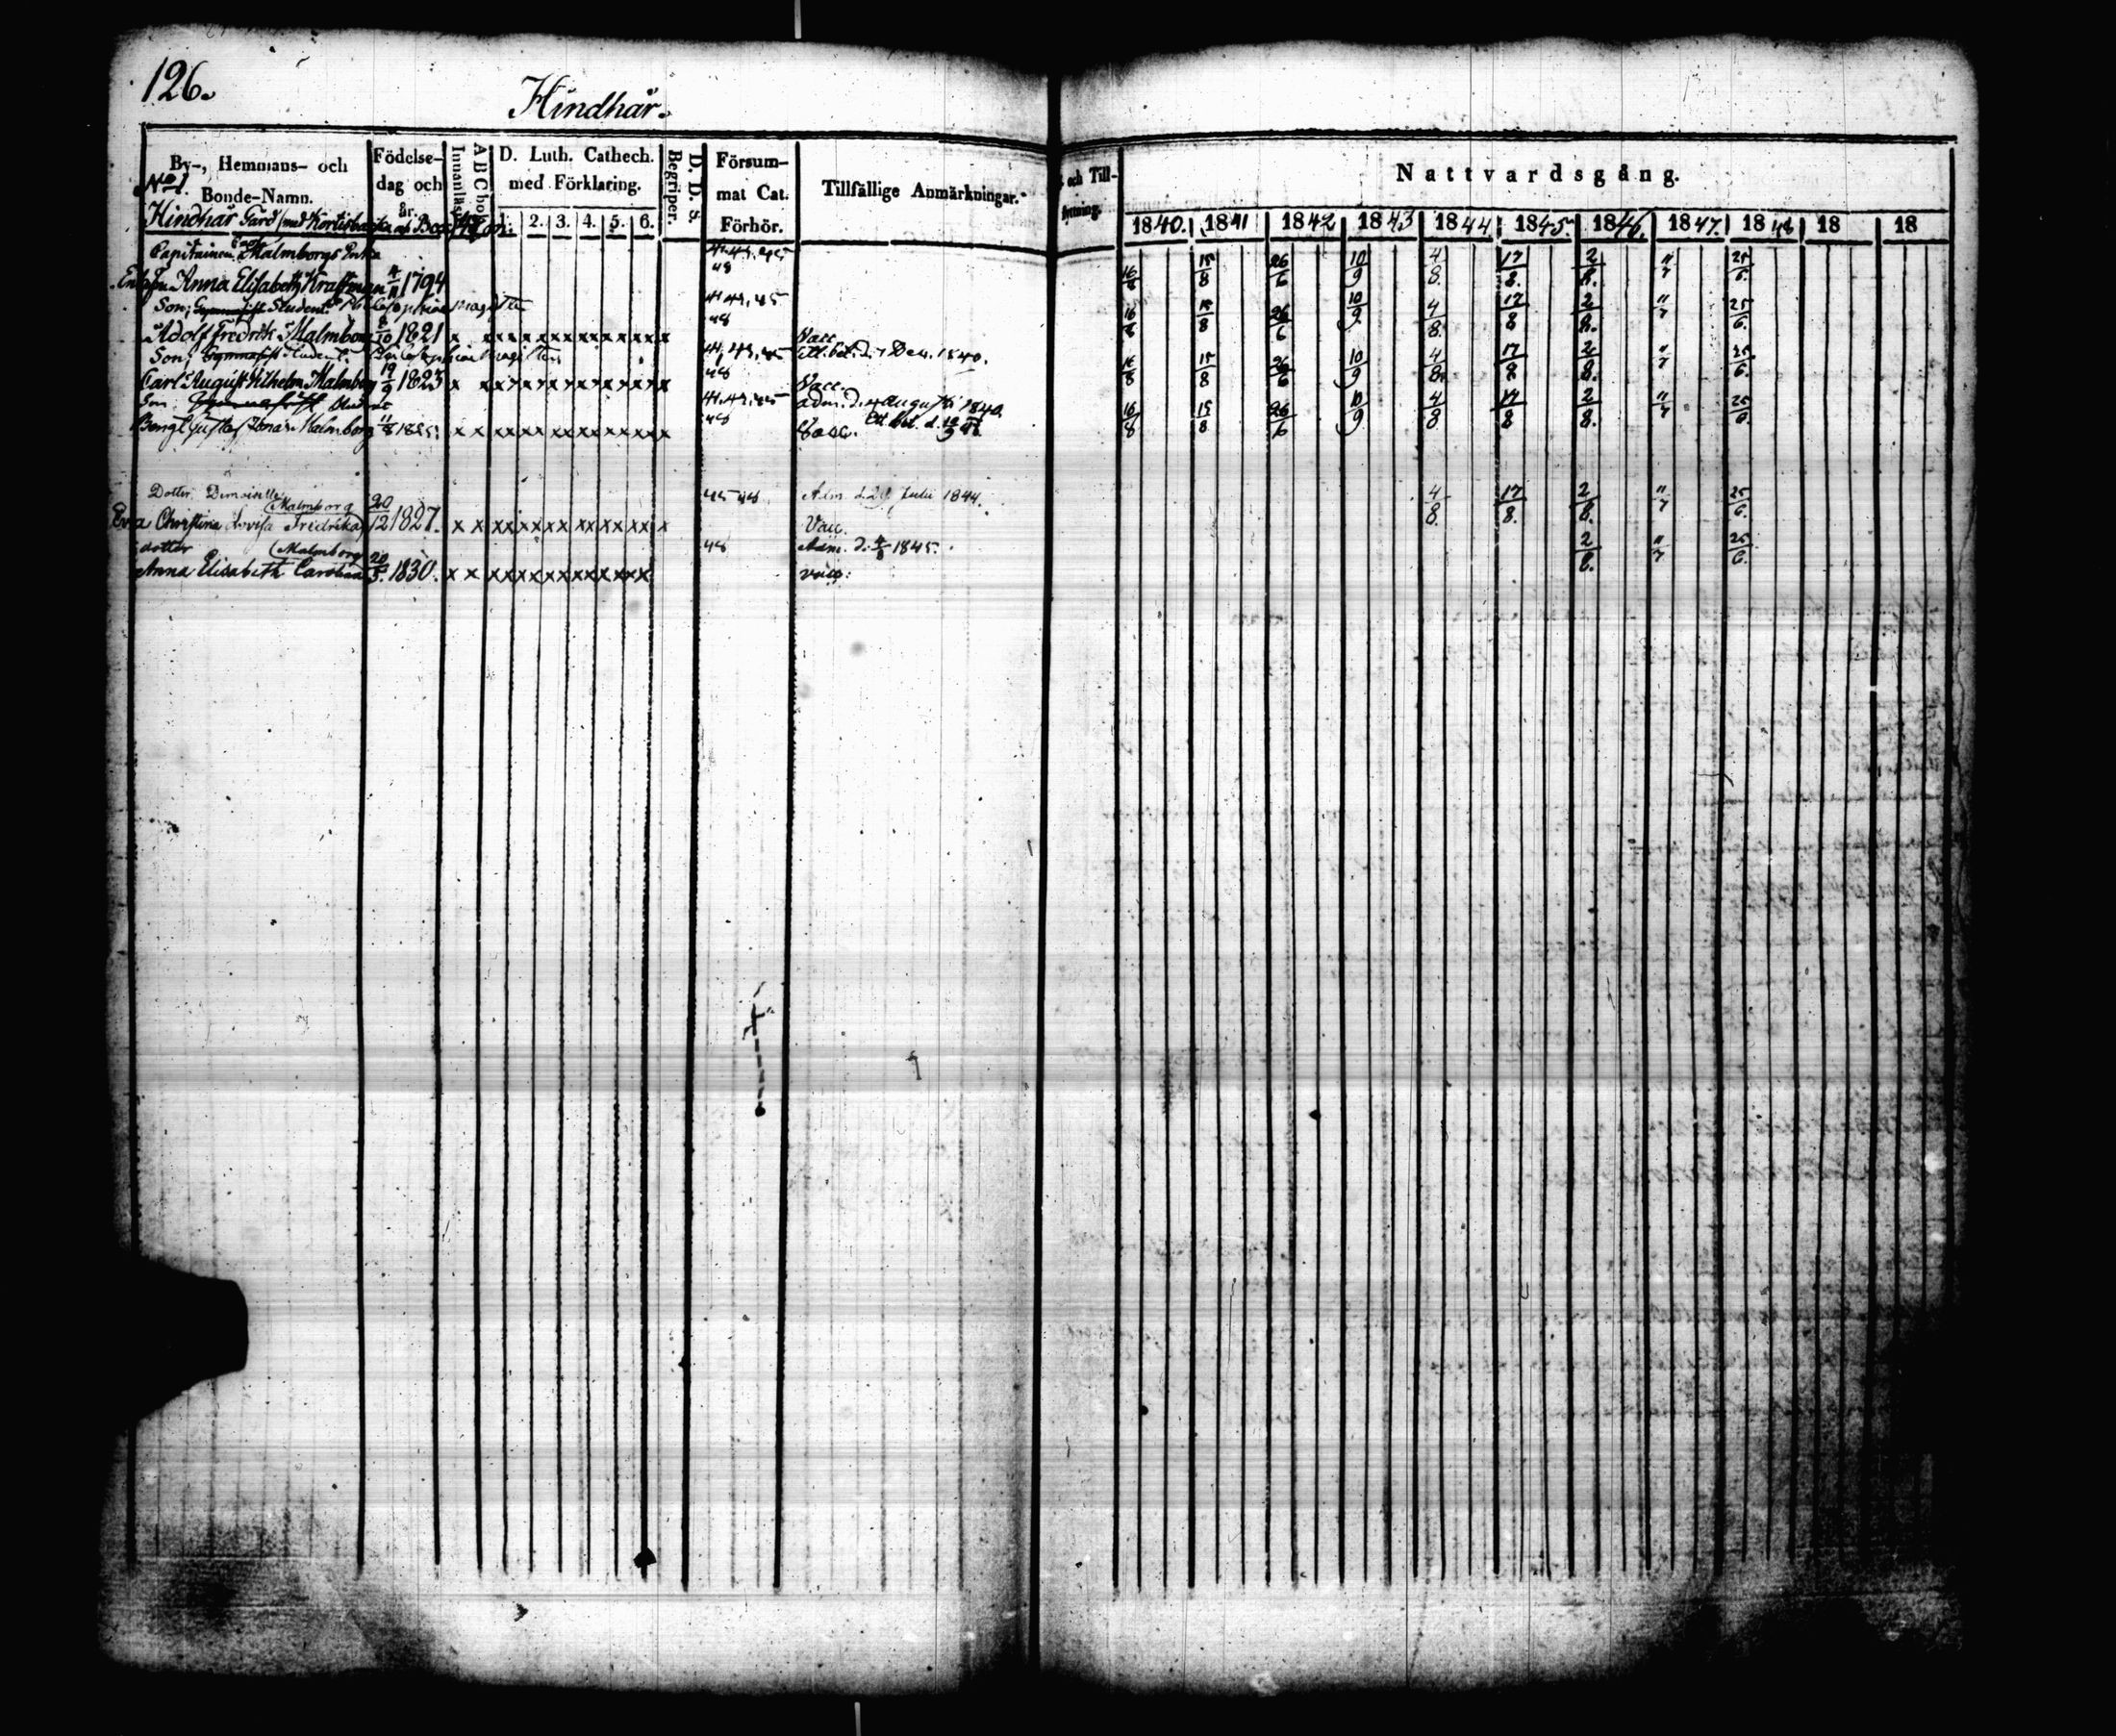 126.
Hindhår.
By-, Hemmans- och
Bonde-Namn.
Födelse-
dag och
år.
Innanläsn.
A B C bok.
D. Luth. Cathech.
med Förklaring.
1. 2. 3. 4. 5. 6.
Begriper.
D. D. S.
Försum-
mat Cat.
Förhör.
Tillfällige Anmärkningar.
och Till-
Nattvardsgång.
1840. 1841 1842 1843 1844 1845 1846. 1847. 1848 18 18
No 1.
Hindhår Gård (med
Capitainen Malmborgs Enka 41.43.45
48
Anna Elisabeth Kraftman 4/11 1794 16/8 15/8 26/6 10/9 4/8. 17/8. 2/8. 11/7 25/6.
Son, Student 41.43.45
48
Adolf Fredrik Malmborg 8/10 1821 x x x x x x x x x x x x x x x Vacc. 16/8 15/8 26/6 10/9 4/8. 17/8 2/8. 11/7 25/6.
Son, Gymnasist Student. 41,43,45 Att. bet. d. 7 Dec. 1840.
48
Carl August Vilhelm Malmborg 19/9 1823 x x x x x x x x x x x x x x x Vacc. 16/8 15/8 26/6 10/9 4/8. 17/8 2/8. 11/7 25/6.
Son Student 41.43.45 Adm. d. 4 Augusti 1840.
48
Bengt Gustaf Malmborg 11/8 1825. x x x x x x x x x x x x x x x Vacc. 16/8 15/8 26/6 10/9 4/8 17/8 2/8. 11/7 25/6.
Dotter Demoiselle 45 48 Adm. d. Julii 1844.
(Malmborg
Eva Christina Lovisa Fredrika 20/12 1827. x x x x x x x x x x x x x x x Vacc. 4/8. 17/8. 2/8. 11/7 25/6.
dotter (Malmborg 48 Adm. d. 4/8 1845.
Anna Elisabeth Carolina 20/5. 1830. x x x x x x x x x x x x x x vacc: 2/8. 11/7 25/6.